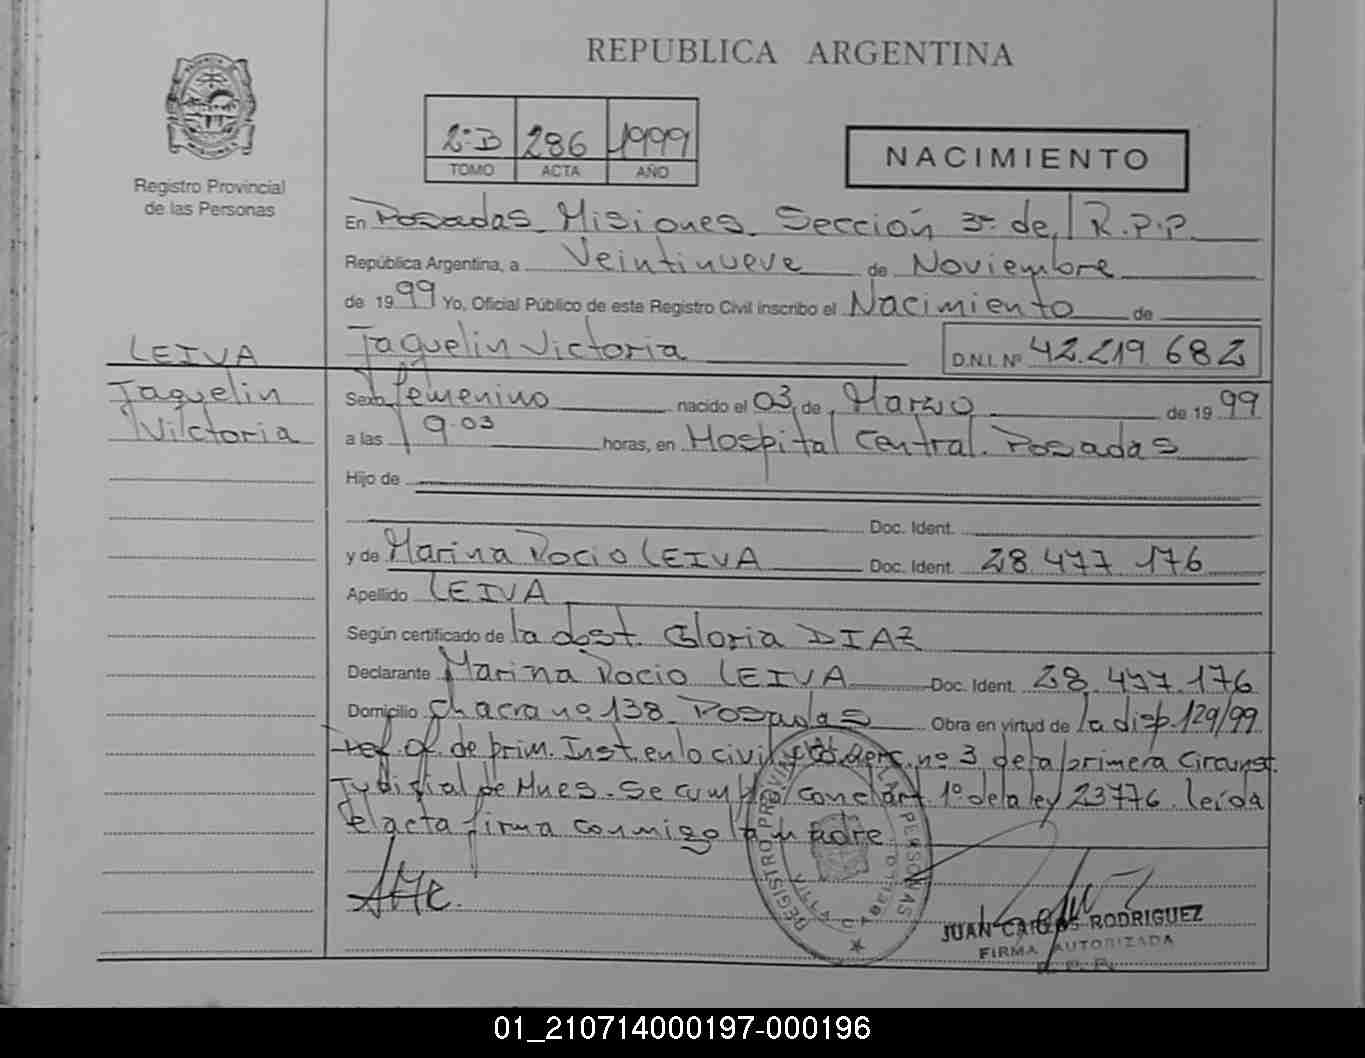 REPUBLICA ARGENTINA
Registro Provincial
de las Personas
2º D 286 1999
TOMO ACTA AÑO
NACIMIENTO
En Posadas Misiones Sección 3ª de R.P.P.
República Argentina, a Veintinueve de Noviembre
de 1999 Yo, Oficial Público de este Registro Civil inscribo el Nacimiento de
Jaquelin Victoria D.N.I. Nº 42.219.682
LEIVA
Jaquelin
Vilctoria
Sexo femenino nacido el 03 de Marzo de 1999
a las 19.03 horas, en Hospital Central. Posadas
Hijo de
Doc. Ident.
y de Marina Rocio LEIVA Doc. Ident. 28.477.176
Apellido LEIVA
Según certificado de la obst. Gloria DIAZ
Declarante Marina Rocio LEIVA Doc. Ident. 28.477.176
Domicilio Chacra nº 138 Posadas Obra en virtud de la disp. 129/99
def. of. de prim. Inst. en lo civil y nº 3 de la primera Circunst.
Judicial de Mnes. Se cumple con el art. 1º de la ley 23776. leída
el acta firma conmigo la madre
REGISTRO PROVINCIAL DE LAS PERSONAS
JUAN CARLOS RODRIGUEZ
FIRMA AUTORIZADA
R. P. P.
01_210714000197-000196